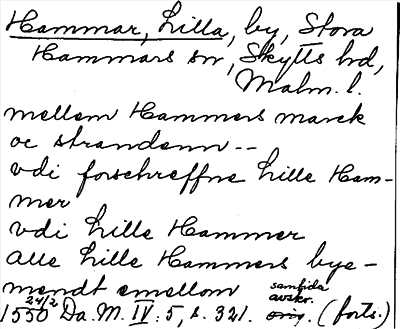 Hammar, Lilla, by, Stora
Hammars sn, Skytts hd,
Malm. l.
mellem Hammers marck
oc strandenn --
vdi forschreffne lille Ham-
mer
vdi lille Hammer
alle lille Hammers bye-
mendt emellom samtida
avskr.
1550 24/2 Da. M. IV: 5, s. 321. orig. (forts.)